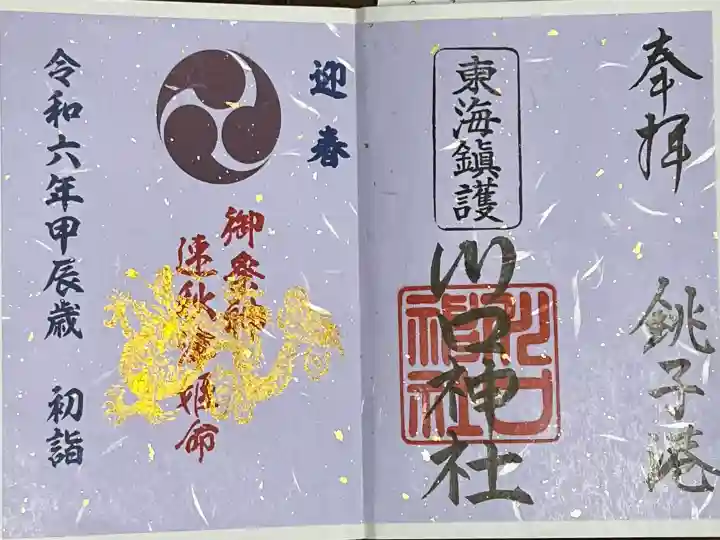 奉拝
銚子港
東海鎮護
川口神社
川口神社
迎春
御祭神
速秋津姫命
令和六年甲辰歳 初詣